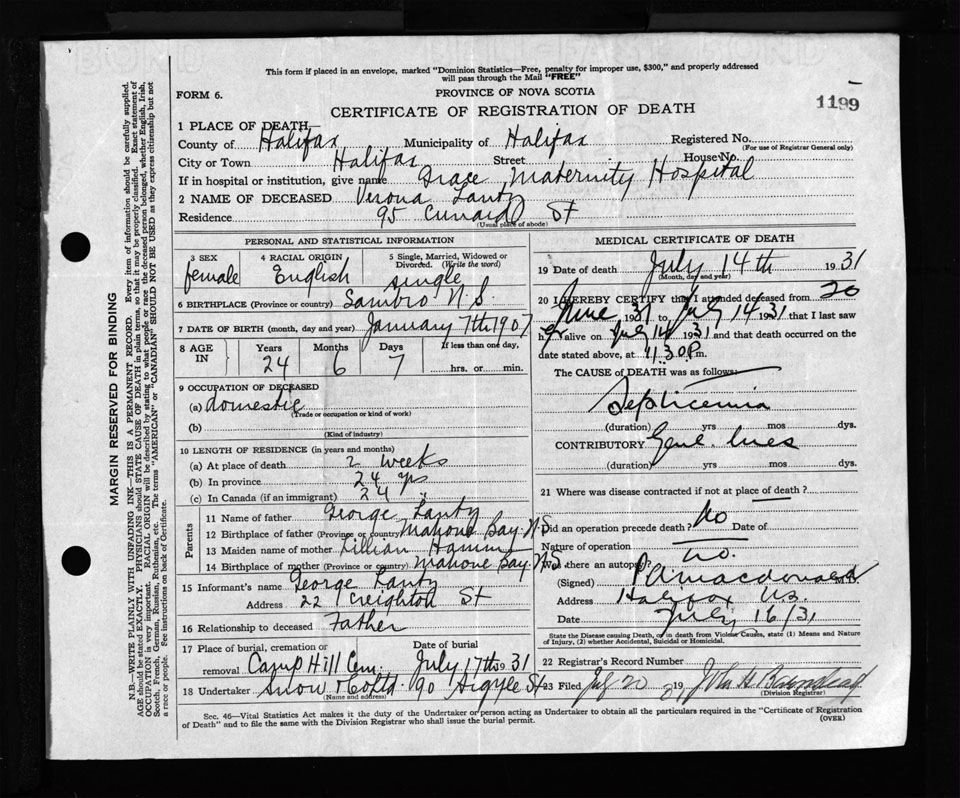 This form if placed in an envelope, marked "Dominion Statistics—Free, penalty for improper use, $300," and properly addressed
will pass through the Mail "FREE"
FORM 6.
PROVINCE OF NOVA SCOTIA
1199
CERTIFICATE OF REGISTRATION OF DEATH
1 PLACE OF DEATH—
County of Halifax Municipality of Halifax Registered No.
(For use of Registrar General only)
City or Town Halifax Street House No.
If in hospital or institution, give name Grace Maternity Hospital
2 NAME OF DECEASED Verona Lantz
Residence 95 Cunard St
(Usual place of abode)
PERSONAL AND STATISTICAL INFORMATION
3 SEX 4 RACIAL ORIGIN 5 Single, Married, Widowed or
Divorced. (Write the word)
female English single
6 BIRTHPLACE (Province or country) Sambro N.S.
7 DATE OF BIRTH (month, day and year) January 7th 1907
8 AGE IN Years Months Days If less than one day,
24 6 7 hrs. or min.
9 OCCUPATION OF DECEASED
(a) domestic
(Trade or occupation or kind of work)
(b)
(Kind of industry)
10 LENGTH OF RESIDENCE (in years and months)
(a) At place of death 2 weeks
(b) In province 24 yrs
(c) In Canada (if an immigrant) 24
Parents
11 Name of father George Lantz
12 Birthplace of father (Province or country) Mahone Bay N.S
13 Maiden name of mother Lillian Hamm
14 Birthplace of mother (Province or country) Mahone Bay N.S.
15 Informant's name George Lantz
Address 22 Creighton St
16 Relationship to deceased Father
17 Place of burial, cremation or Date of burial
removal Camp Hill Cem. July 17th 1931
18 Undertaker Snow & Co Ltd. 90 Argyle St
(Name and address)
MEDICAL CERTIFICATE OF DEATH
19 Date of death July 14th 1931
(Month, day and year)
20 I HEREBY CERTIFY that I attended deceased from 20
June 1931 to July 14 1931 that I last saw
her alive on July 14 1931 and that death occurred on the
date stated above, at 11.30 P.m.
The CAUSE of DEATH was as follows:
Septicemia
(duration) yrs mos dys.
CONTRIBUTORY Gene. lues
(duration) yrs mos dys.
21 Where was disease contracted if not at place of death?
Did an operation precede death? No Date of
Nature of operation
Was there an autopsy? no.
(Signed) Macdonald
Address Halifax N.S.
Date July 16/31
State the Disease causing Death, or in death from Violent Causes, state (1) Means and Nature
of Injury, (2) whether Accidental, Suicidal or Homicidal.
22 Registrar's Record Number
23 Filed July 20 1931 John H
(Division Registrar)
Sec. 46—Vital Statistics Act makes it the duty of the Undertaker or person acting as Undertaker to obtain all the particulars required in the "Certificate of Registration
of Death" and to file the same with the Division Registrar who shall issue the burial permit.
(OVER)
MARGIN RESERVED FOR BINDING
N.B.—WRITE PLAINLY WITH UNFADING INK—THIS IS A PERMANENT RECORD. Every item of information should be carefully supplied.
AGE should be stated EXACTLY. PHYSICIANS should STATE CAUSE OF DEATH in plain terms, so that it may be properly classified. Exact statement of
OCCUPATION is very important. RACIAL ORIGIN will be described by stating to what people or race the deceased person belonged, whether English, Irish,
Scotch, French, German, Russian, Ruthenian, etc. The terms "AMERICAN" or "CANADIAN" SHOULD NOT BE USED as they express citizenship but not
a race or people. See instructions on back of Certificate.